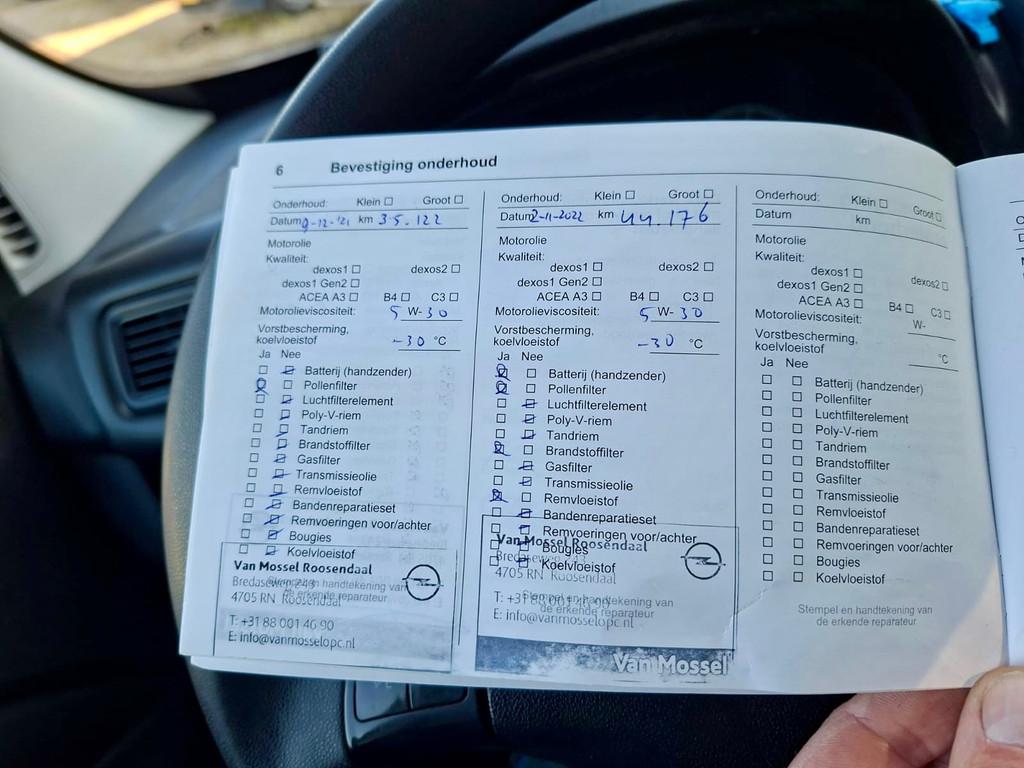 6 Bevestiging onderhoud
Onderhoud: Klein ☐ Groot ☐
Datum 9-12-'21 km 35.122
Motorolie
Kwaliteit:
dexos1 ☐ dexos2 ☐
dexos1 Gen2 ☐
ACEA A3 ☐ B4 ☐ C3 ☐
Motorolieviscositeit: 5 W-30
Vorstbescherming,
koelvloeistof -30 °C
Ja Nee
Batterij (handzender)
Pollenfilter
Luchtfilterelement
Poly-V-riem
Tandriem
Brandstoffilter
Gasfilter
Transmissieolie
Remvloeistof
Bandenreparatieset
Remvoeringen voor/achter
Bougies
Koelvloeistof
Van Mossel Roosendaal
Bredaseweg 243
4705 RN Roosendaal
Stempel en handtekening van
de erkende reparateur
T: +31 88 001 46 90
E: info@vanmosselopc.nl
Onderhoud: Klein ☐ Groot ☐
Datum 2-11-2022 km 44.176
Motorolie
Kwaliteit:
dexos1 ☐ dexos2 ☐
dexos1 Gen2 ☐
ACEA A3 ☐ B4 ☐ C3 ☐
Motorolieviscositeit: 5 W-30
Vorstbescherming,
koelvloeistof -30 °C
Ja Nee
Batterij (handzender)
Pollenfilter
Luchtfilterelement
Poly-V-riem
Tandriem
Brandstoffilter
Gasfilter
Transmissieolie
Remvloeistof
Bandenreparatieset
Remvoeringen voor/achter
Bougies
Koelvloeistof
Van Mossel Roosendaal
Bredaseweg 243
4705 RN Roosendaal
Stempel en handtekening van
de erkende reparateur
T: +31 88 001 46 90
E: info@vanmosselopc.nl
Van Mossel
Onderhoud: Klein ☐ Groot ☐
Datum km
Motorolie
Kwaliteit:
dexos1 ☐ dexos2 ☐
dexos1 Gen2 ☐
ACEA A3 ☐ B4 ☐ C3 ☐
Motorolieviscositeit: W-
Vorstbescherming,
koelvloeistof °C
Ja Nee
☐ ☐ Batterij (handzender)
☐ ☐ Pollenfilter
☐ ☐ Luchtfilterelement
☐ ☐ Poly-V-riem
☐ ☐ Tandriem
☐ ☐ Brandstoffilter
☐ ☐ Gasfilter
☐ ☐ Transmissieolie
☐ ☐ Remvloeistof
☐ ☐ Bandenreparatieset
☐ ☐ Remvoeringen voor/achter
☐ ☐ Bougies
☐ ☐ Koelvloeistof
Stempel en handtekening van
de erkende reparateur